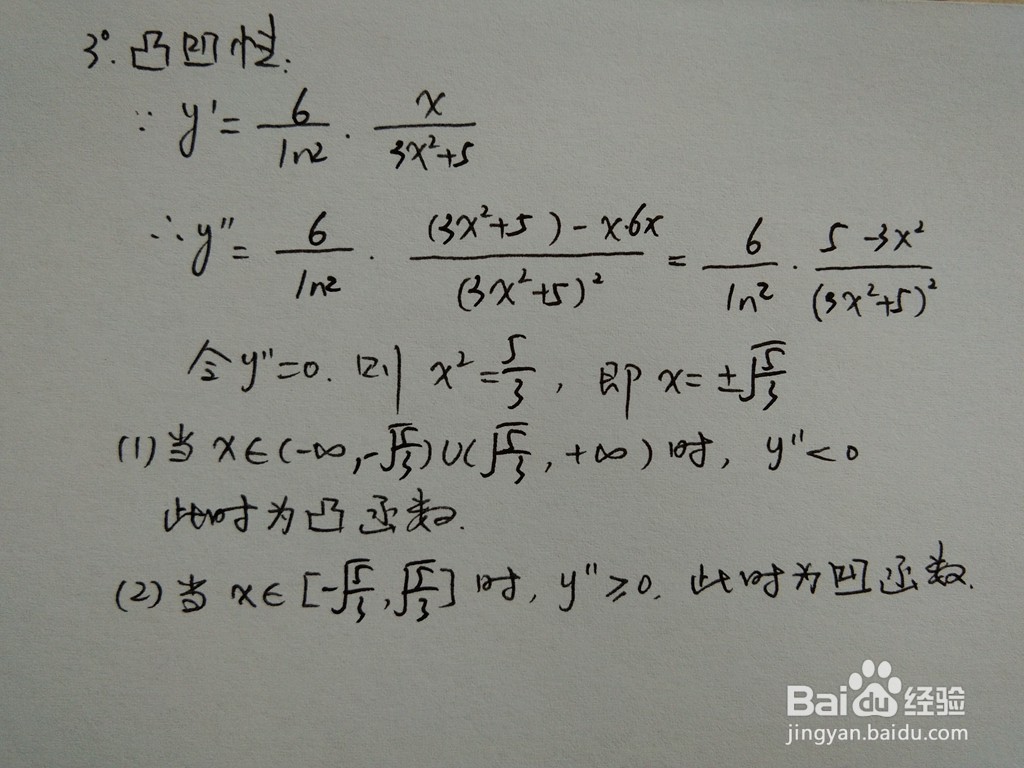 3°. 凸凹性:
∵ y' = 6/ln2 · x/(3x²+5)
∴ y'' = 6/ln2 · ((3x²+5) - x·6x)/(3x²+5)² = 6/ln2 · (5-3x²)/(3x²+5)²
令y''=0. 则 x²=5/3, 即 x=±√(5/3)
(1)当 x∈(-∞,-√(5/3))∪(√(5/3),+∞)时, y''<0
此时为凸函数.
(2)当 x∈[-√(5/3),√(5/3)]时, y''≥0. 此时为凹函数.
Baidu经验
jingyan.baidu.com